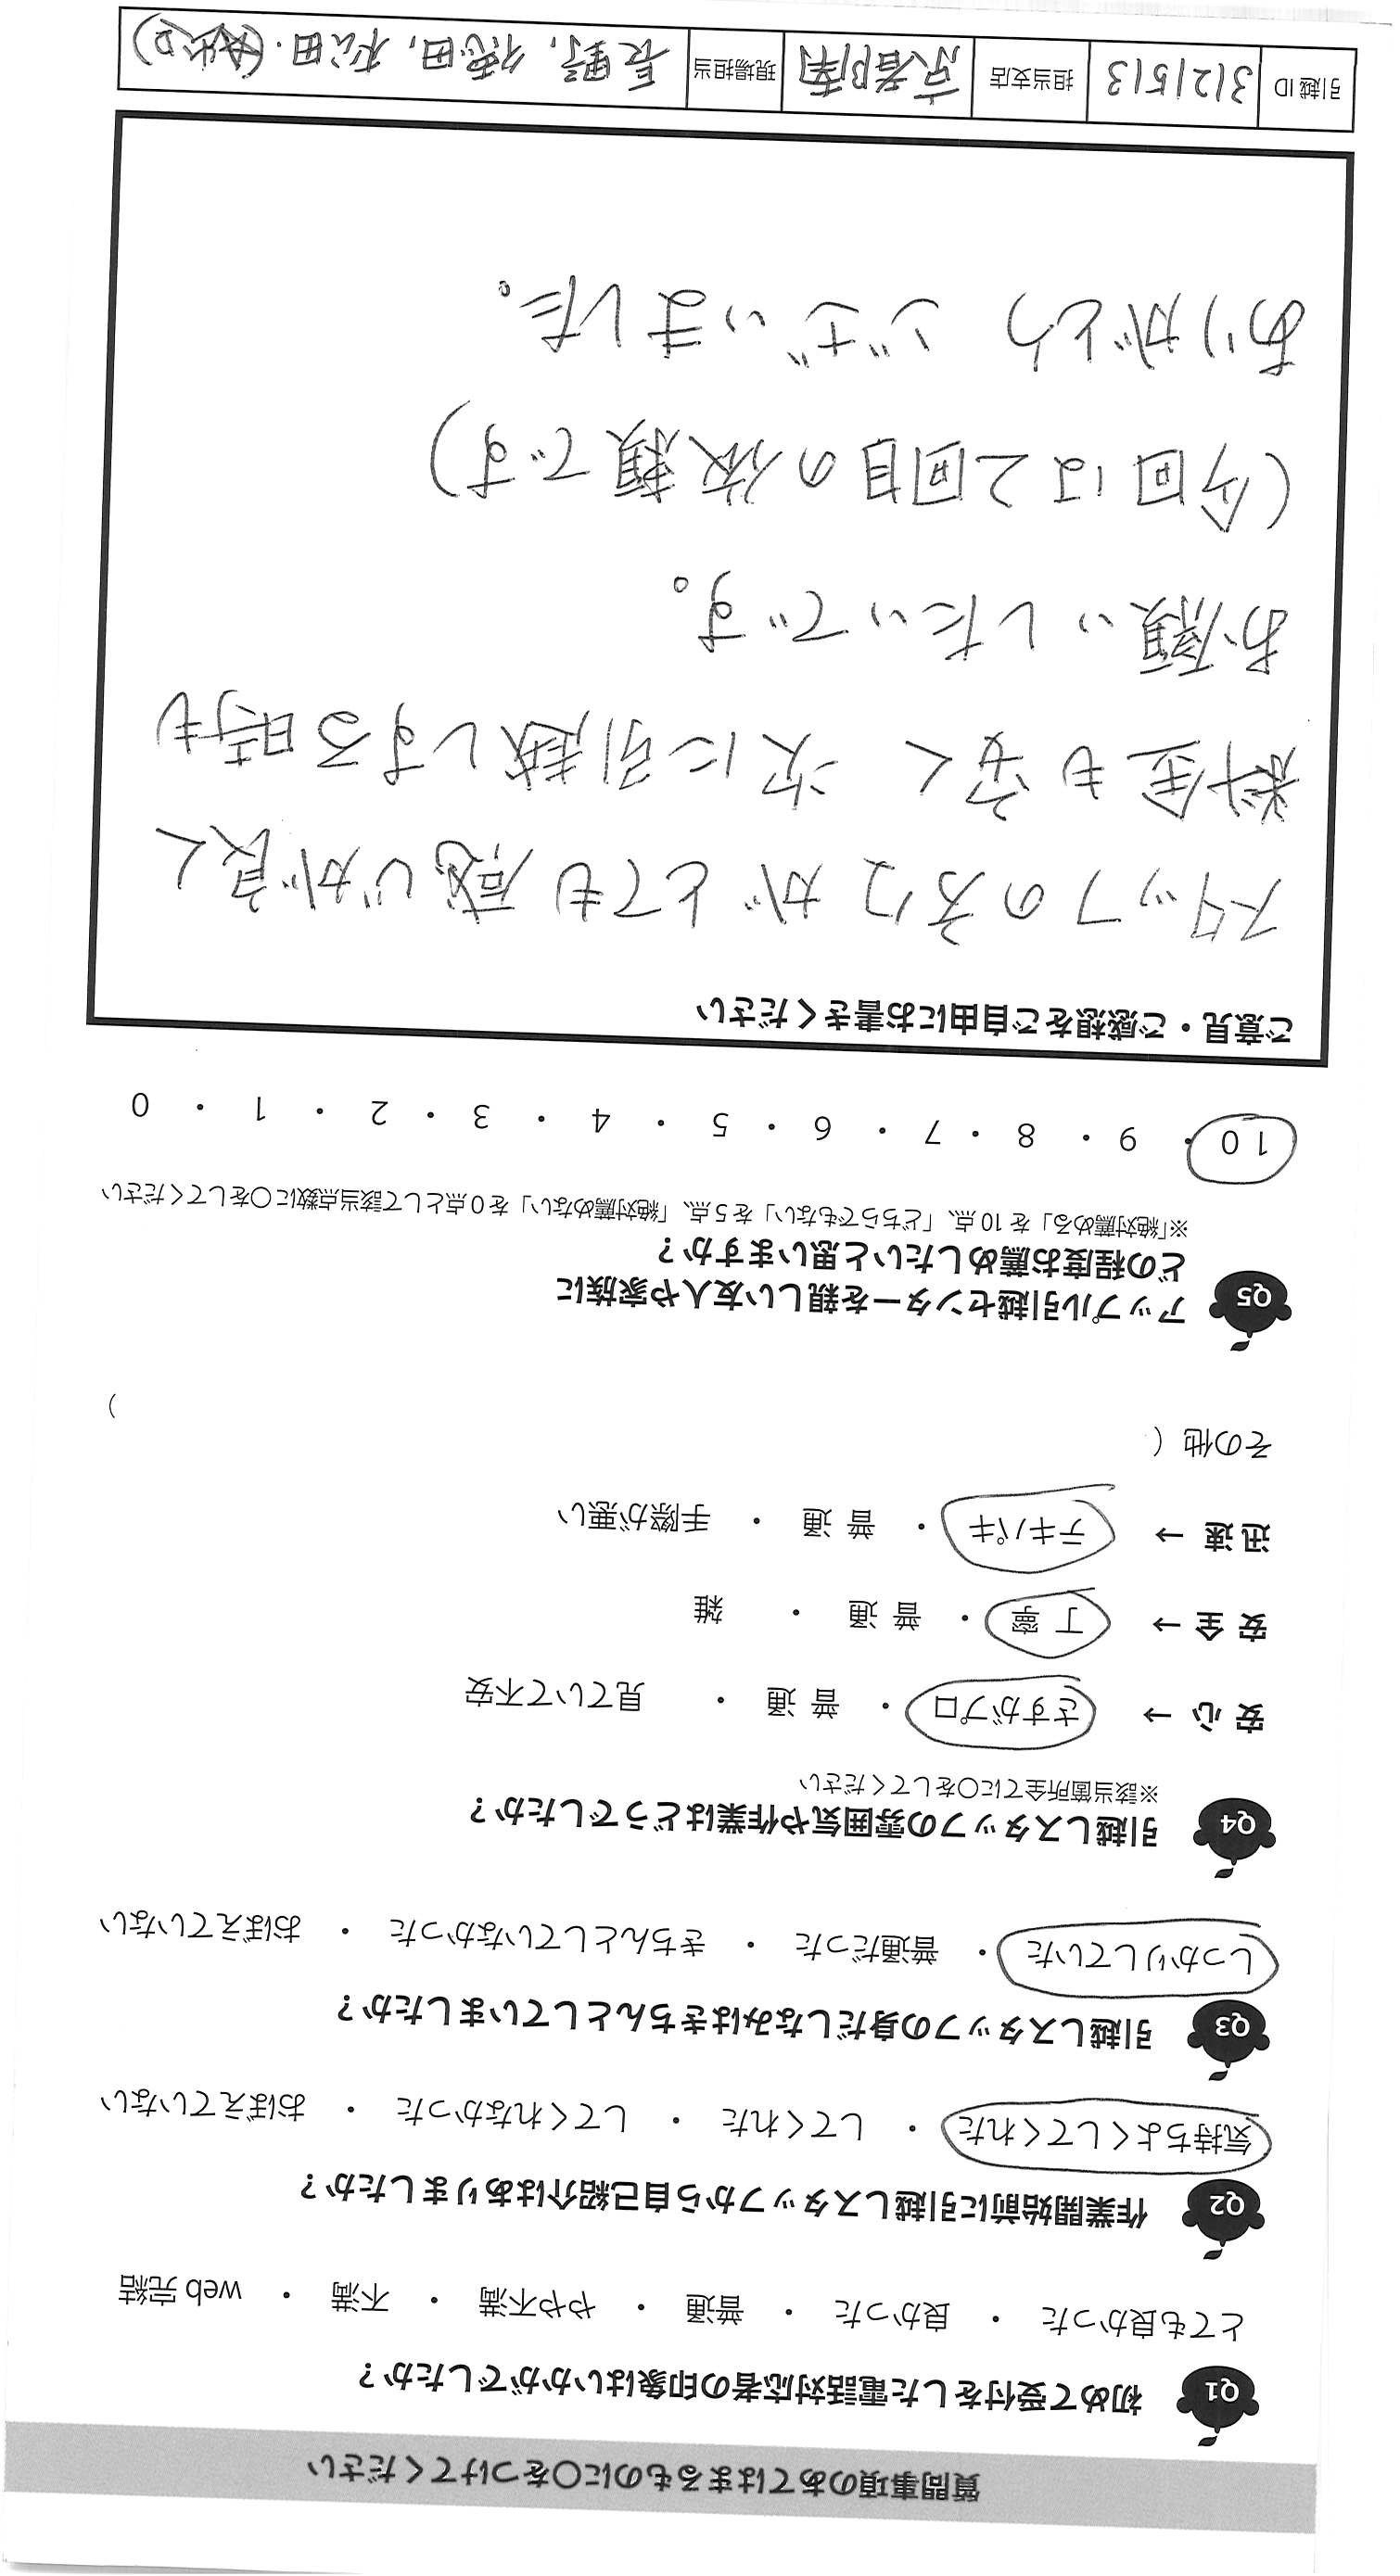 質問事項のあてはまるものに〇をつけてください
Q1 初めて受付をした電話対応者の印象はいかがでしたか？
とても良かった ・ 良かった ・ 普通 ・ やや不満 ・ 不満 ・ web 完結
Q2 作業開始前に引越しスタッフから自己紹介はありましたか？
気持ちよくしてくれた ・ してくれた ・ してくれなかった ・ おぼえていない
Q3 引越しスタッフの身だしなみはきちんとしていましたか？
しっかりしていた ・ 普通だった ・ きちんとしていなかった ・ おぼえていない
Q4 引越しスタッフの雰囲気や作業はどうでしたか？
※該当箇所全てに〇をしてください
安 心 → さすがプロ ・ 普 通 ・ 見ていて不安
安 全 → 丁 寧 ・ 普 通 ・ 雑
迅 速 → テキパキ ・ 普 通 ・ 手際が悪い
その他（ ）
Q5 アップル引越センターを親しい友人や家族に
どの程度お薦めしたいと思いますか？
※「絶対薦める」を 10 点、「どちらでもない」を 5 点、「絶対薦めない」を 0 点として該当点数に〇をしてください
10 ・ 9 ・ 8 ・ 7 ・ 6 ・ 5 ・ 4 ・ 3 ・ 2 ・ 1 ・ 0
ご意見・ご感想をご自由にお書きください
スタッフの方々がとても感じが良く
料金も安く 次に引越しする時も
お願いしたいです。
(今回は2回目の依頼です)
ありがとうございました。
引越 ID 3121513 担当支店 京都南 現場担当 長野, 徳田, 松田.